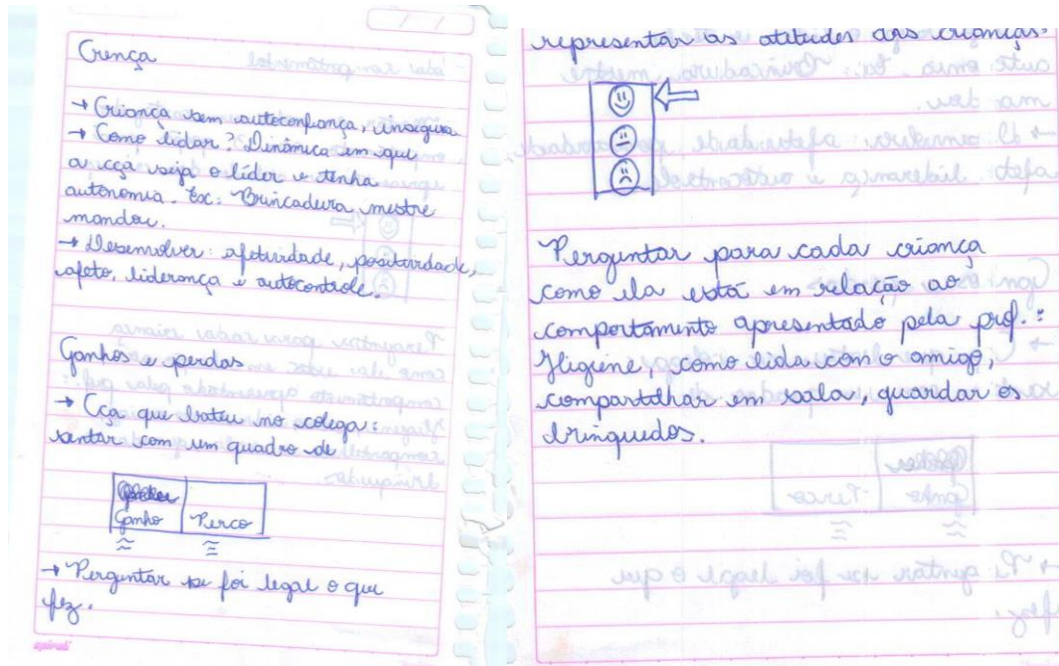 Crença
→ Criança sem autoconfiança, insegura
→ Como lidar? Dinâmica em que
a cça seja o líder e tenha
autonomia. Ex: Brincadeira mestre
mandou.
→ Desenvolver: afetividade, positividade,
afeto, liderança e autocontrole.
Ganhos e perdas
→ Cça que bateu no colega:
sentar com um quadro de
Ganho Perco
→ Perguntar se foi legal o que
fez.
spiral
representar as atitudes das crianças:
Perguntar para cada criança
como ela está em relação ao
comportamento apresentado pela prof.:
Higiene, como lida com o amigo,
compartilhar em sala, guardar os
brinquedos.